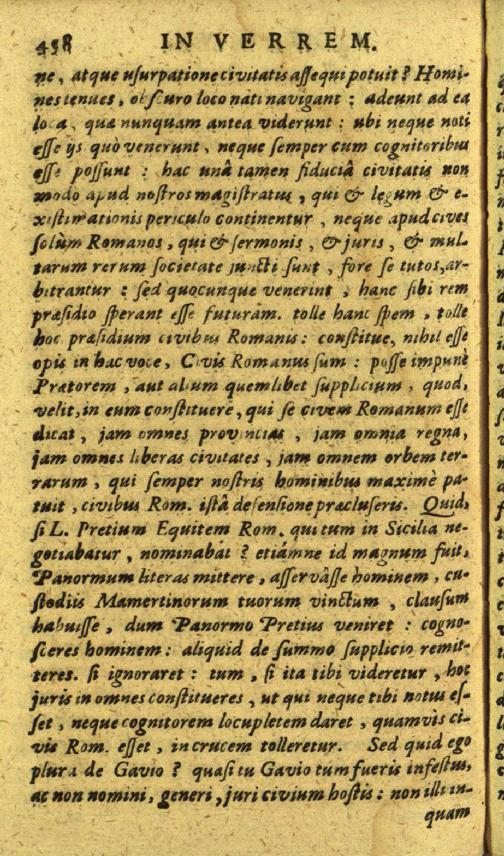 438 IN VERREM.
ne, atque uſurpatione civitatis aſſequi potuit? Homi-
nes tenues, obſcuro loco nati navigant : adeunt ad ea
loca, quæ nunquam antea viderunt : ubi neque noti
eſſe ijs quò venerunt, neque ſemper cum cognitoribus
eſſe poſſunt : hac unâ tamen fiduciâ civitatis non
modo apud noſtros magiſtratus, qui & legum & e-
xiſtimationis periculo continentur, neque apud cives
ſolùm Romanos, qui & ſermonis, & juris, & mul-
tarum rerum ſocietate juncti ſunt, fore ſe tutos, ar-
bitrantur : ſed quocunque venerint, hanc ſibi rem
præſidio ſperant eſſe futuram. tolle hanc ſpem, tolle
hoc præſidium civibus Romanis : conſtitue, nihil eſſe
opis in hac voce, Civis Romanus ſum : poſſe impunè
Prætorem, aut alium quemlibet ſupplicium, quod,
velit, in eum conſtituere, qui ſe civem Romanum eſſe
dicat, jam omnes provincias, jam omnia regna,
jam omnes liberas civitates, jam omnem orbem ter-
rarum, qui ſemper noſtris hominibus maximè pa-
tuit, civibus Rom. iſtâ defenſione præcluſeris. Quid,
ſi L. Pretium Equitem Rom. qui tum in Sicilia ne-
gotiabatur, nominabat? etiámne id magnum fuit,
Panormum literas mittere, aſſervâſſe hominem, cu-
ſtodiis Mamertinorum tuorum vinctum, clauſum
habuiſſe, dum Panormo Pretius veniret : cogno-
ſceres hominem : aliquid de ſummo ſupplicio remit-
teres. ſi ignoraret : tum, ſi ita tibi videretur, hoc
juris in omnes conſtitueres, ut qui neque tibi notus eſ-
ſet, neque cognitorem locupletem daret, quamvis ci-
vis Rom. eſſet, in crucem tolleretur. Sed quid ego
plura de Gavio? quaſi tu Gavio tum fueris infeſtus,
ac non nomini, generi, juri civium hoſtis : non illi in-
quam